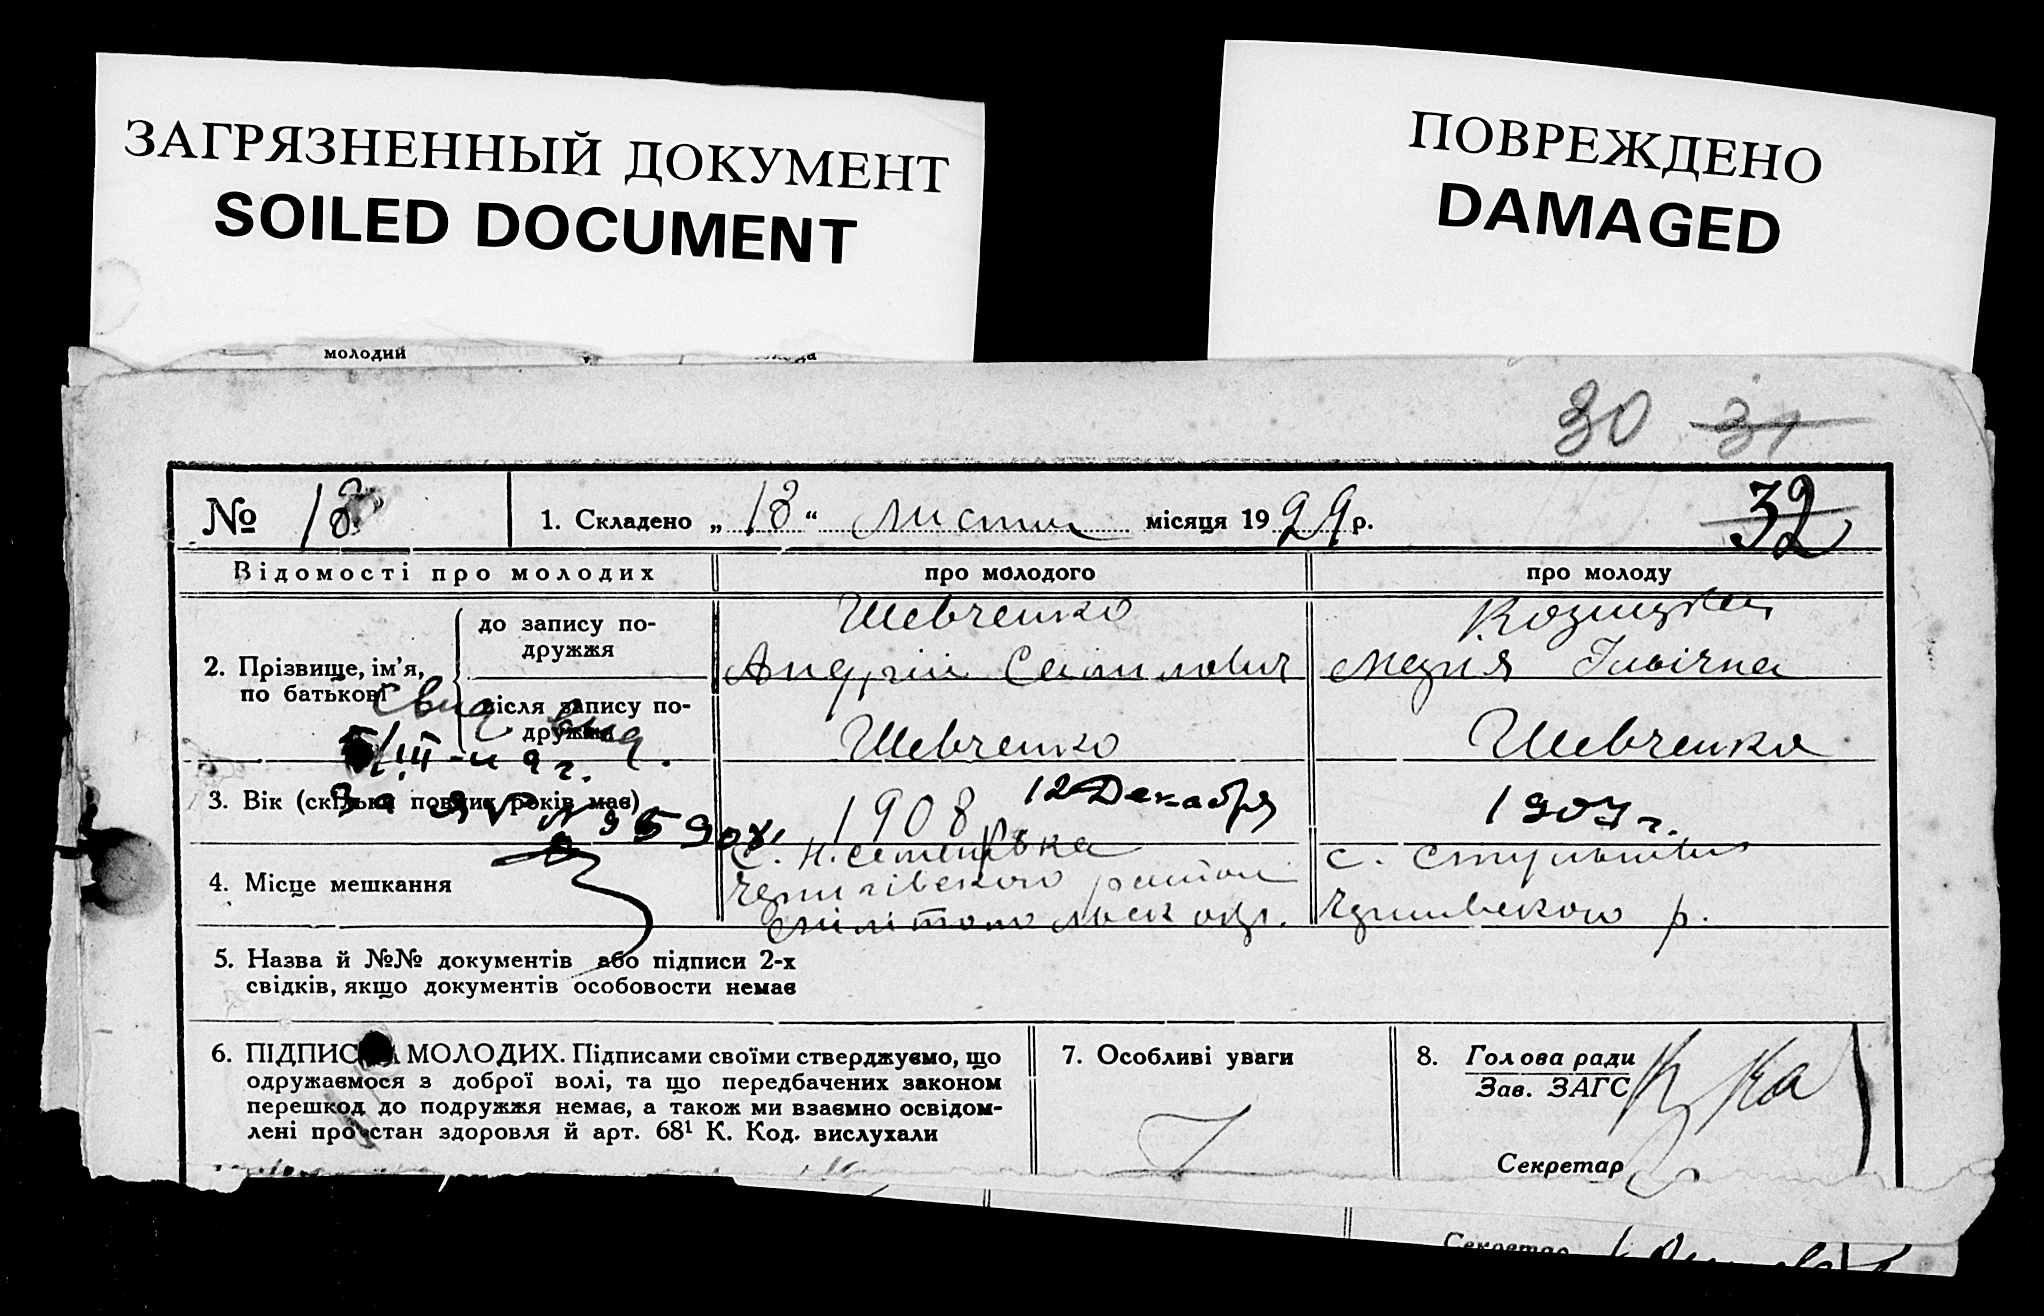 ЗАГРЯЗНЕННЫЙ ДОКУМЕНТ
SOILED DOCUMENT
ПОВРЕЖДЕНО
DAMAGED
молодий
30 31
№ 18
1. Складено „18“ листоп місяця 1929 р.
32
Відомості про молодих
про молодого
про молоду
2. Прізвище, ім'я, по батькові
до запису подружжя
Шевченко
Андрій Самилович
Козицкая
Марія Ільічна
після запису подружжя
Шевченко
Шевченко
Свид выд.
5/III-49г.
3. Вік (скільки повних років має)
1908 12 Декабря
1907 г.
За ЯР № 359081
4. Місце мешкання
с. Н. Семенівка
Чернігівского району
Мілітопольск окр.
с.
Чернивского р.
5. Назва й №№ документів або підписи 2-х
свідків, якщо документів особовости немає
6. ПІДПИС МОЛОДИХ. Підписами своїми стверджуємо, що
одружаємося з доброї волі, та що передбачених законом
перешкод до подружжя немає, а також ми взаємно освідом-
лені про стан здоровля й арт. 68¹ К. Код. вислухали
7. Особливі уваги
8. Голова ради
Зав. ЗАГС
Секретар
Секретар